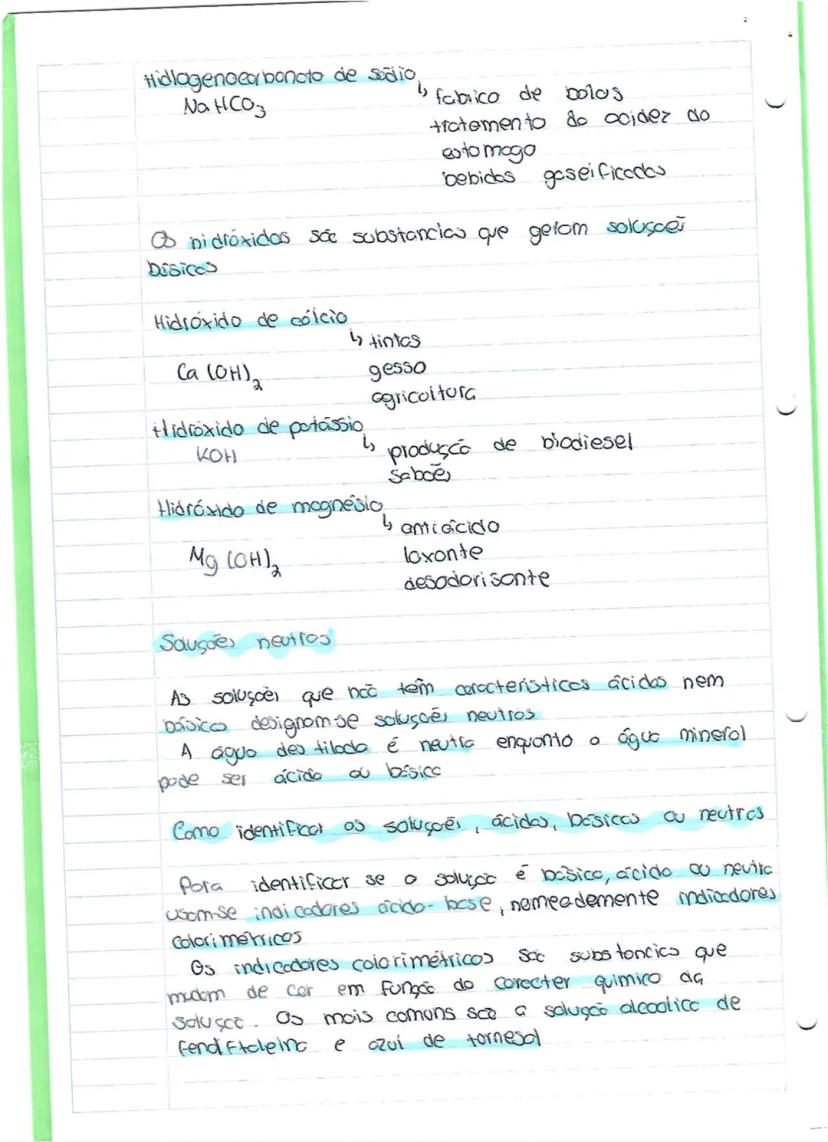 Hidrogenocarbonato de sódio
NaHCO3
↳ fabrico de bolos
tratamento da acidez do
estomago
bebidas gaseificadas
Os hidróxidos são substancias que geram soluções
básicas
Hidróxido de cálcio
↳ tintas
Ca (OH)2
gesso
agricoltura
Hidróxido de potássio
KOH
↳ produção de biodiesel
sabões
Hidróxido de magnésio
↳ antiácido
Mg (OH)2
laxante
desodorisante
Soluções neutras
As soluções que não têm caracteristicas ácidas nem
básicas designam-se soluções neutras
A água destilada é neutra enquanto a água mineral
pode ser ácida ou básica
Como identificar as soluções, ácidas, básicas ou neutras
Para identificar se a solução é básica, ácida ou neutra
usam-se indicadores ácido-base, nomeadamente indicadores
colorimétricos
Os indicadores colorimétricos são substancias que
mudam de cor em função do carecter quimico da
solução. Os mais comuns são a solução alcoolica de
fenolftaleina e azul de tornesol